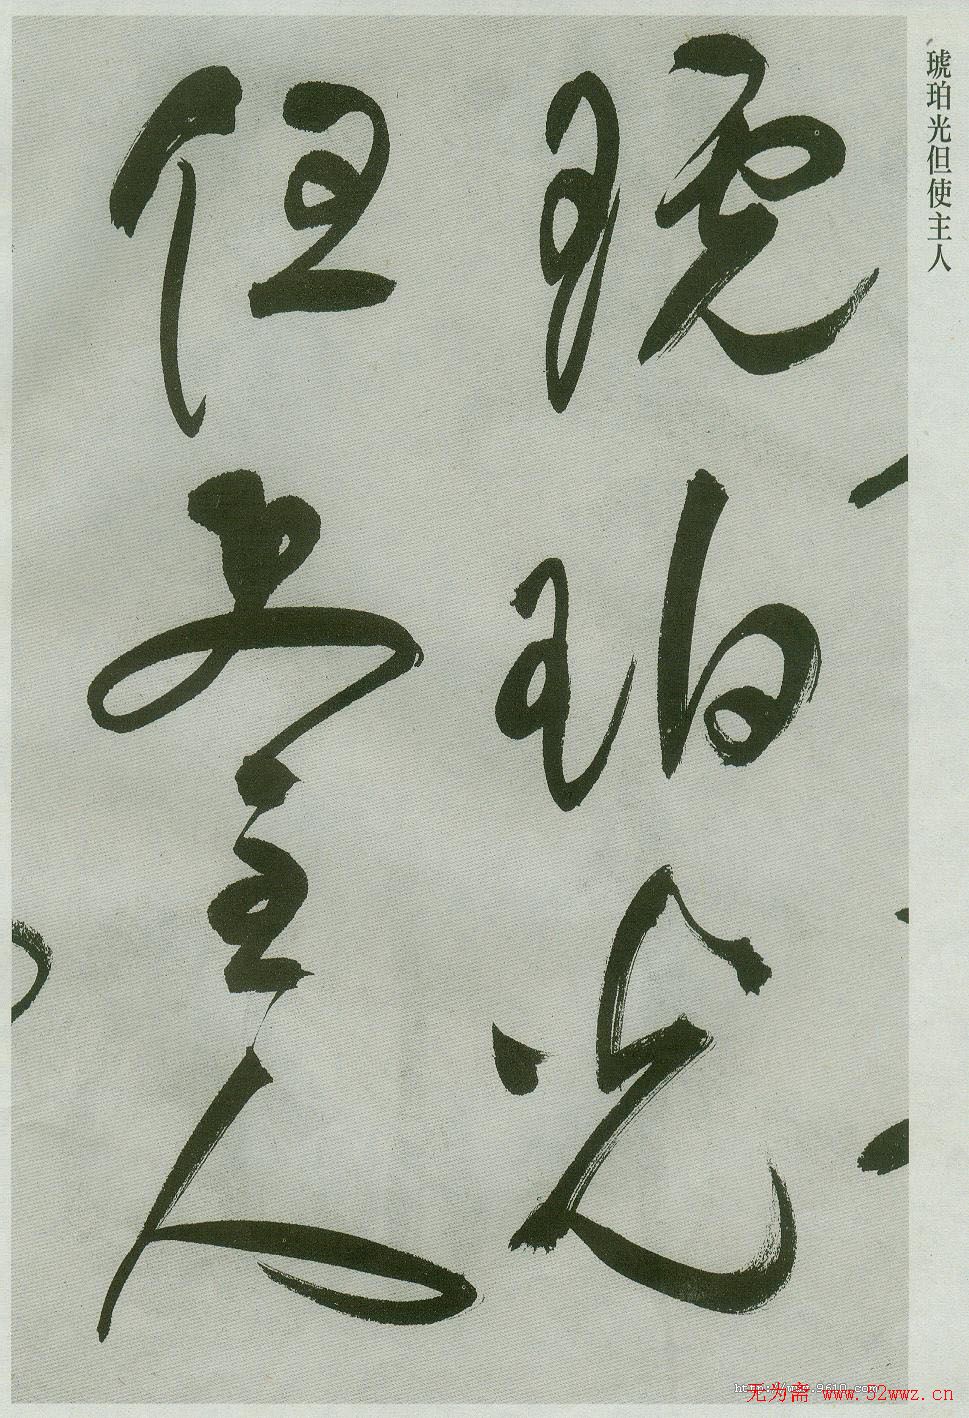 琥珀光但使主人
琥珀光
但使主人
无为斋 www.52wwz.cn